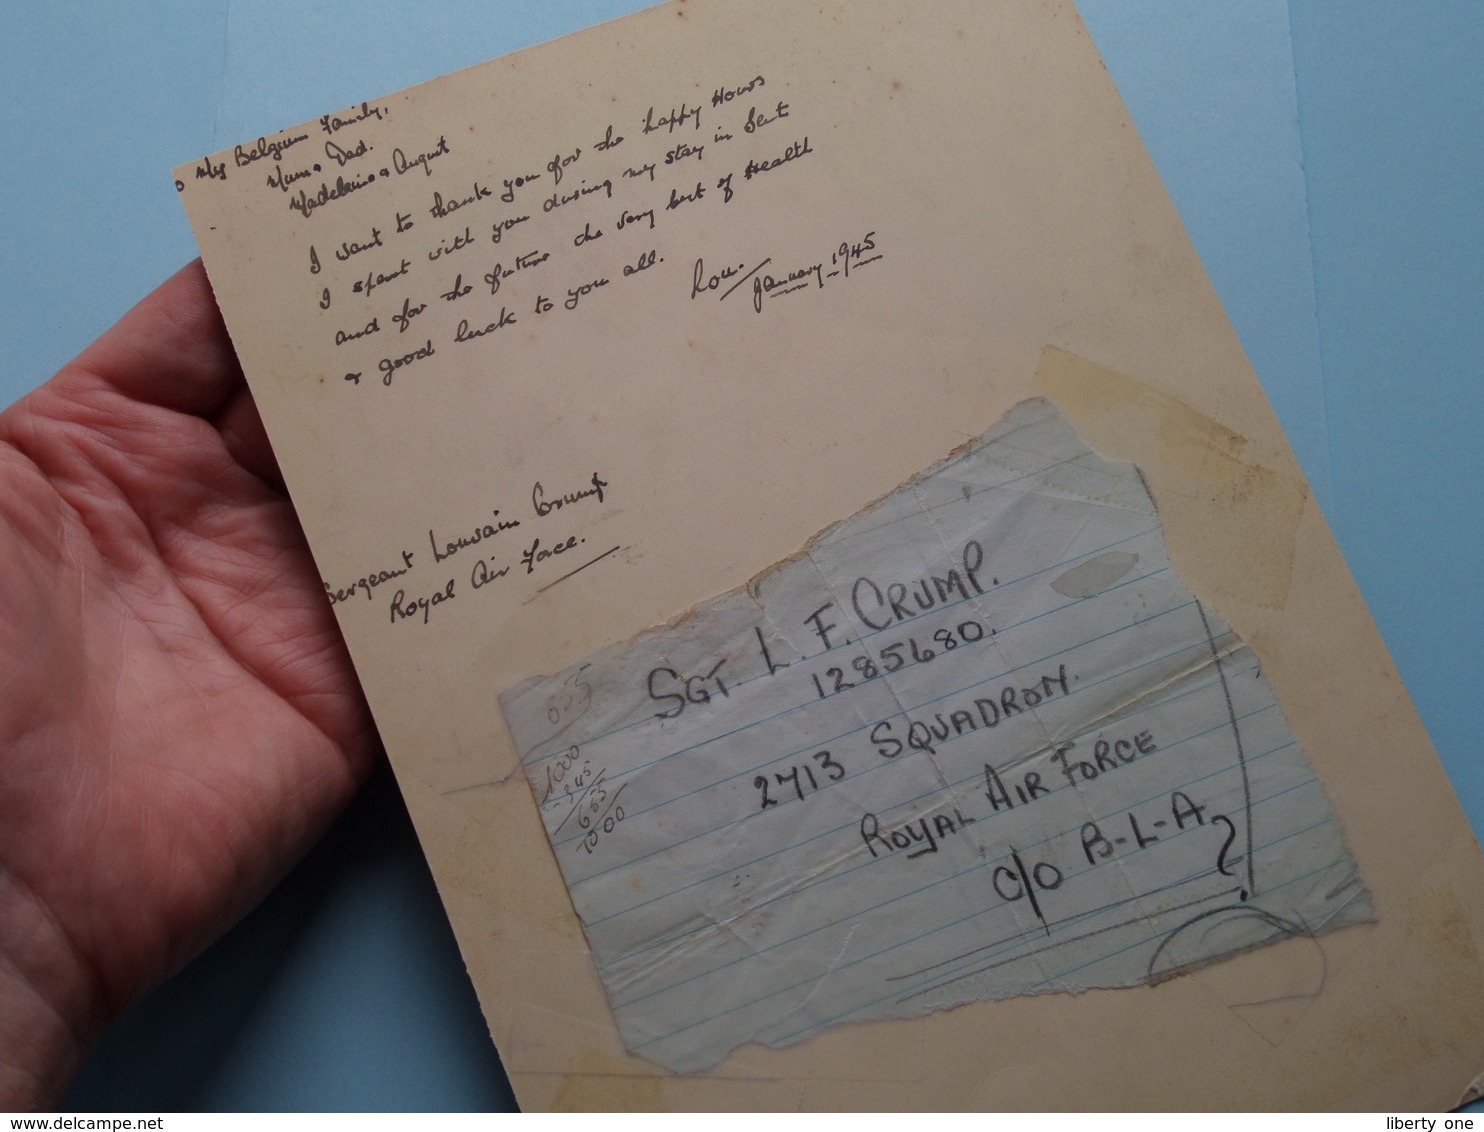 o My Belgium Family,
Mum & Dad.
Madeleine & August
I want to thank you for the happy Hours
I spent with you during my stay in Gent
and for the future the very best of Health
& good luck to you all.
Lou.
January 1945
Sergeant Louvain Crump
Royal Air Force.
655
SGT. L. F. CRUMP.
1285680.
2713 SQUADRON.
ROYAL AIR FORCE
c/o B-L-A
1000
345
655
1000
www.delcampe.net
liberty one